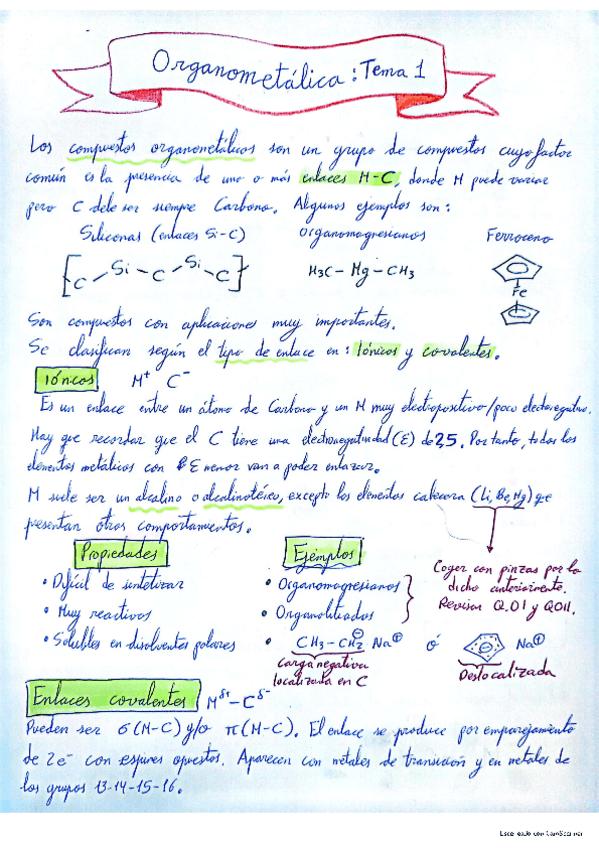 Organometálica: Tema 1
Los compuestos organometálicos son un grupo de compuestos cuyo factor
común es la presencia de uno o más enlaces M-C, donde M puede variar
pero C debe ser siempre Carbono. Algunos ejemplos son:
Siliconas (enlaces Si-C) Organomagresianos Ferroceno
[C-Si-C-Si-C] H3C-Mg-CH3 Fe
Son compuestos con aplicaciones muy importantes.
Se clasifican según el tipo de enlace en: Iónicos y covalentes.
Iónicos M+ C-
Es un enlace entre un átomo de Carbono y un M muy electropositivo/poco electronegativo.
Hay que recordar que el C tiene una electronegatividad (E) de 2,5. Por tanto, todos los
elementos metálicos con E menor van a poder enlazar.
M suele ser un alcalino o alcalinotérreo, excepto los elementos cabecera (Li, Be, Mg) que
presentan otros comportamientos.
Propiedades
• Difícil de sintetizar
• Muy reactivos
• Solubles en disolventes polares
Ejemplos
• Organomagresianos
• Organolitiados
• CH3-CH2⊖ Na⊕ ó Na⊕
Carga negativa
localizada en C
Deslocalizada
Coger con pinzas por lo
dicho anteriormente.
Revisar QOI y QOII.
Enlaces covalentes Mδ+-Cδ-
Pueden ser σ(M-C) y/o π(M-C). El enlace se produce por emparejamiento
de 2e- con espines opuestos. Aparecen con metales de transición y en metales de
los grupos 13-14-15-16.
Escaneado con CamScanner